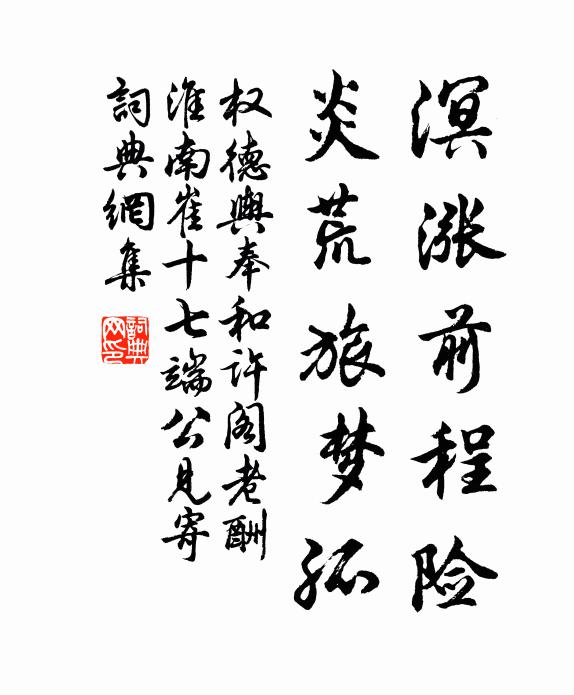 溟漲前程险
炎荒旅梦孤
权德輿奉和许阁老酬
淮南崔十七端公見寄
詞典網集
詞典网印